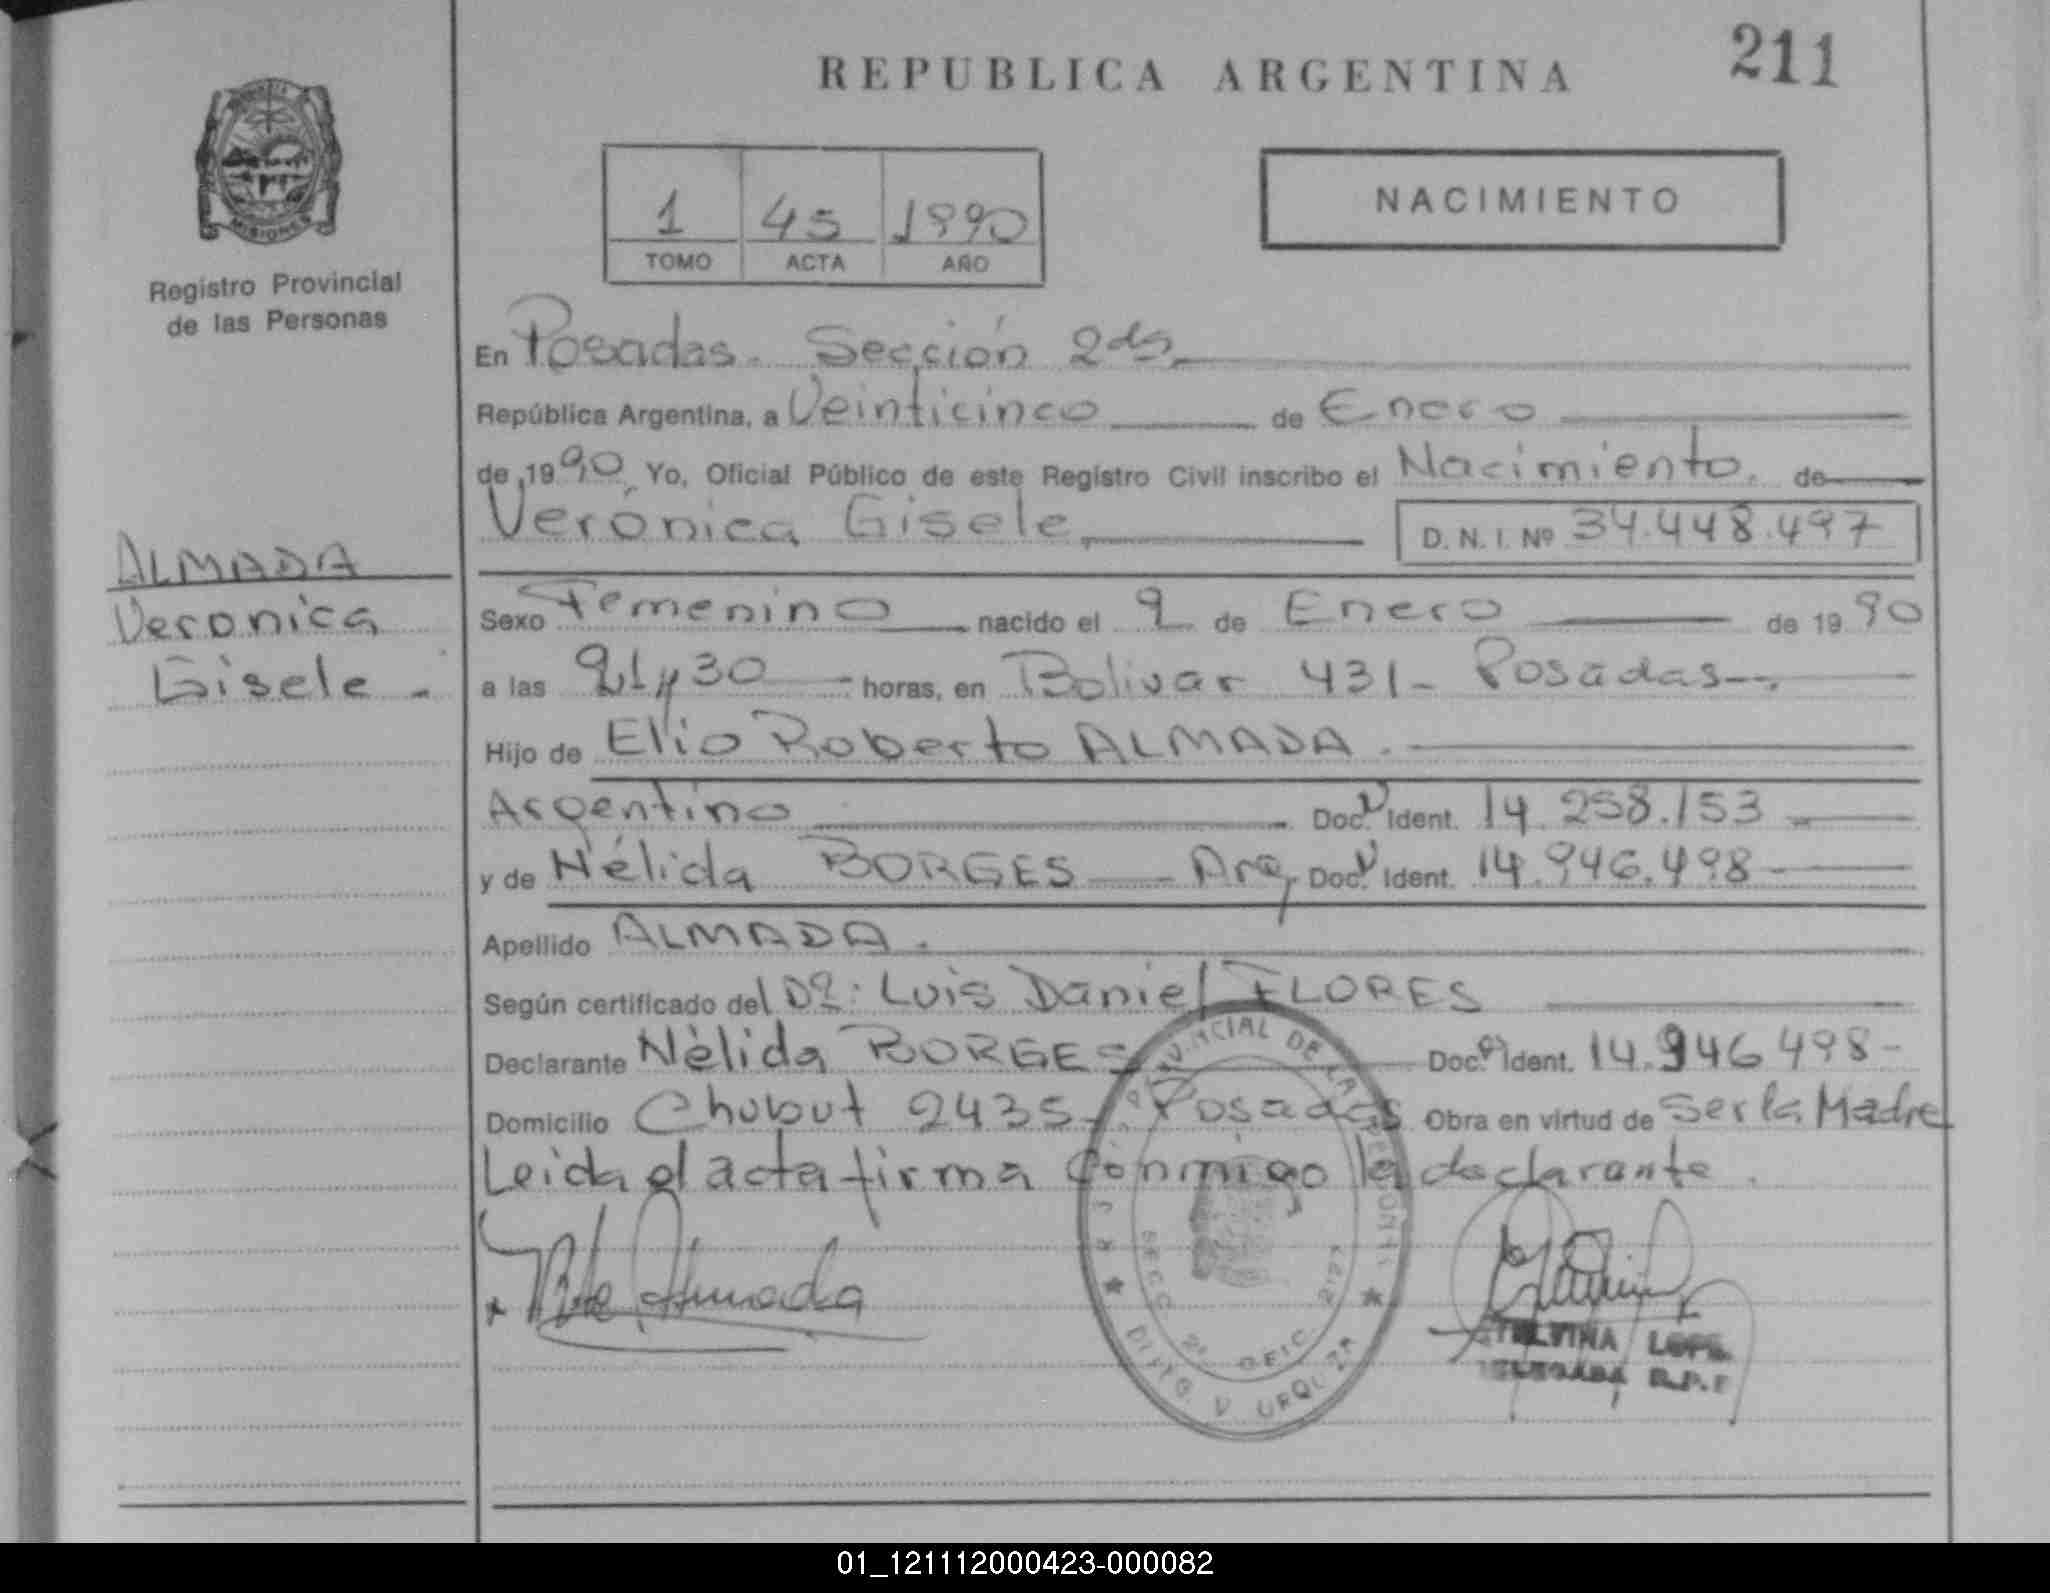 REPUBLICA ARGENTINA
211
MISIONES
Registro Provincial
de las Personas
1 45 1990
TOMO ACTA AÑO
NACIMIENTO
En Posadas. Sección 2da.
República Argentina, a Veinticinco de Enero
de 1990 Yo, Oficial Público de este Registro Civil inscribo el Nacimiento. de
Verónica Gisele
D. N. I. Nº 34.448.497
ALMADA
Veronica
Gisele -
Sexo Femenino nacido el 9 de Enero de 1990
a las 21 y 30 horas, en Bolivar 431 - Posadas -
Hijo de Elio Roberto ALMADA.
Argentino Doc. Ident. 14.258.153
y de Nélida BORGES Arg. Doc. Ident. 14.946.498
Apellido ALMADA.
Según certificado del Dr: Luis Daniel FLORES
Declarante Nélida BORGES Doc. Ident. 14.946.498-
Domicilio Chubut 2435- Posadas Obra en virtud de Ser la Madre
Leida el acta firma conmigo la declarante.
Almada
PROVINCIAL DE LAS PERSONAS
DPTO. V. URQUIZA
01_121112000423-000082